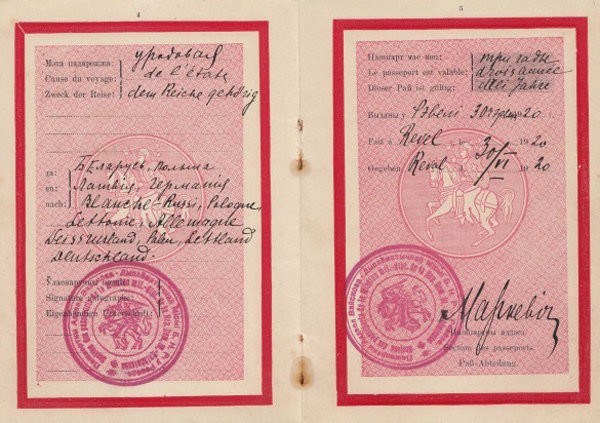 4
Мэта падарожжа:
Cause du voyage:
Zweck der Reise:
урадовая
de l'état
dem Reiche gehörig
да:
en:
nach:
Беларусь, Польша
Латвія, Германія
Blanche-Russi, Pologne,
Lettonie, Allemagne
Weissrutland, Polen, Lettland
Deutschland.
Signature autographe:
Eigenhändige Unterschrift:
5
Пашпарт мае моц:
Le passeport est valable:
Dieser Paß ist gültig:
тры гады
trois année
drei Jahre
Выданы у Рэвелі 30 1920
Fait à Revel, le 30 1920
Gegeben Reval, VI 1920
Маркевіч
Пашпартны аддзел.
Section des passeports.
Paß-Abteilung.